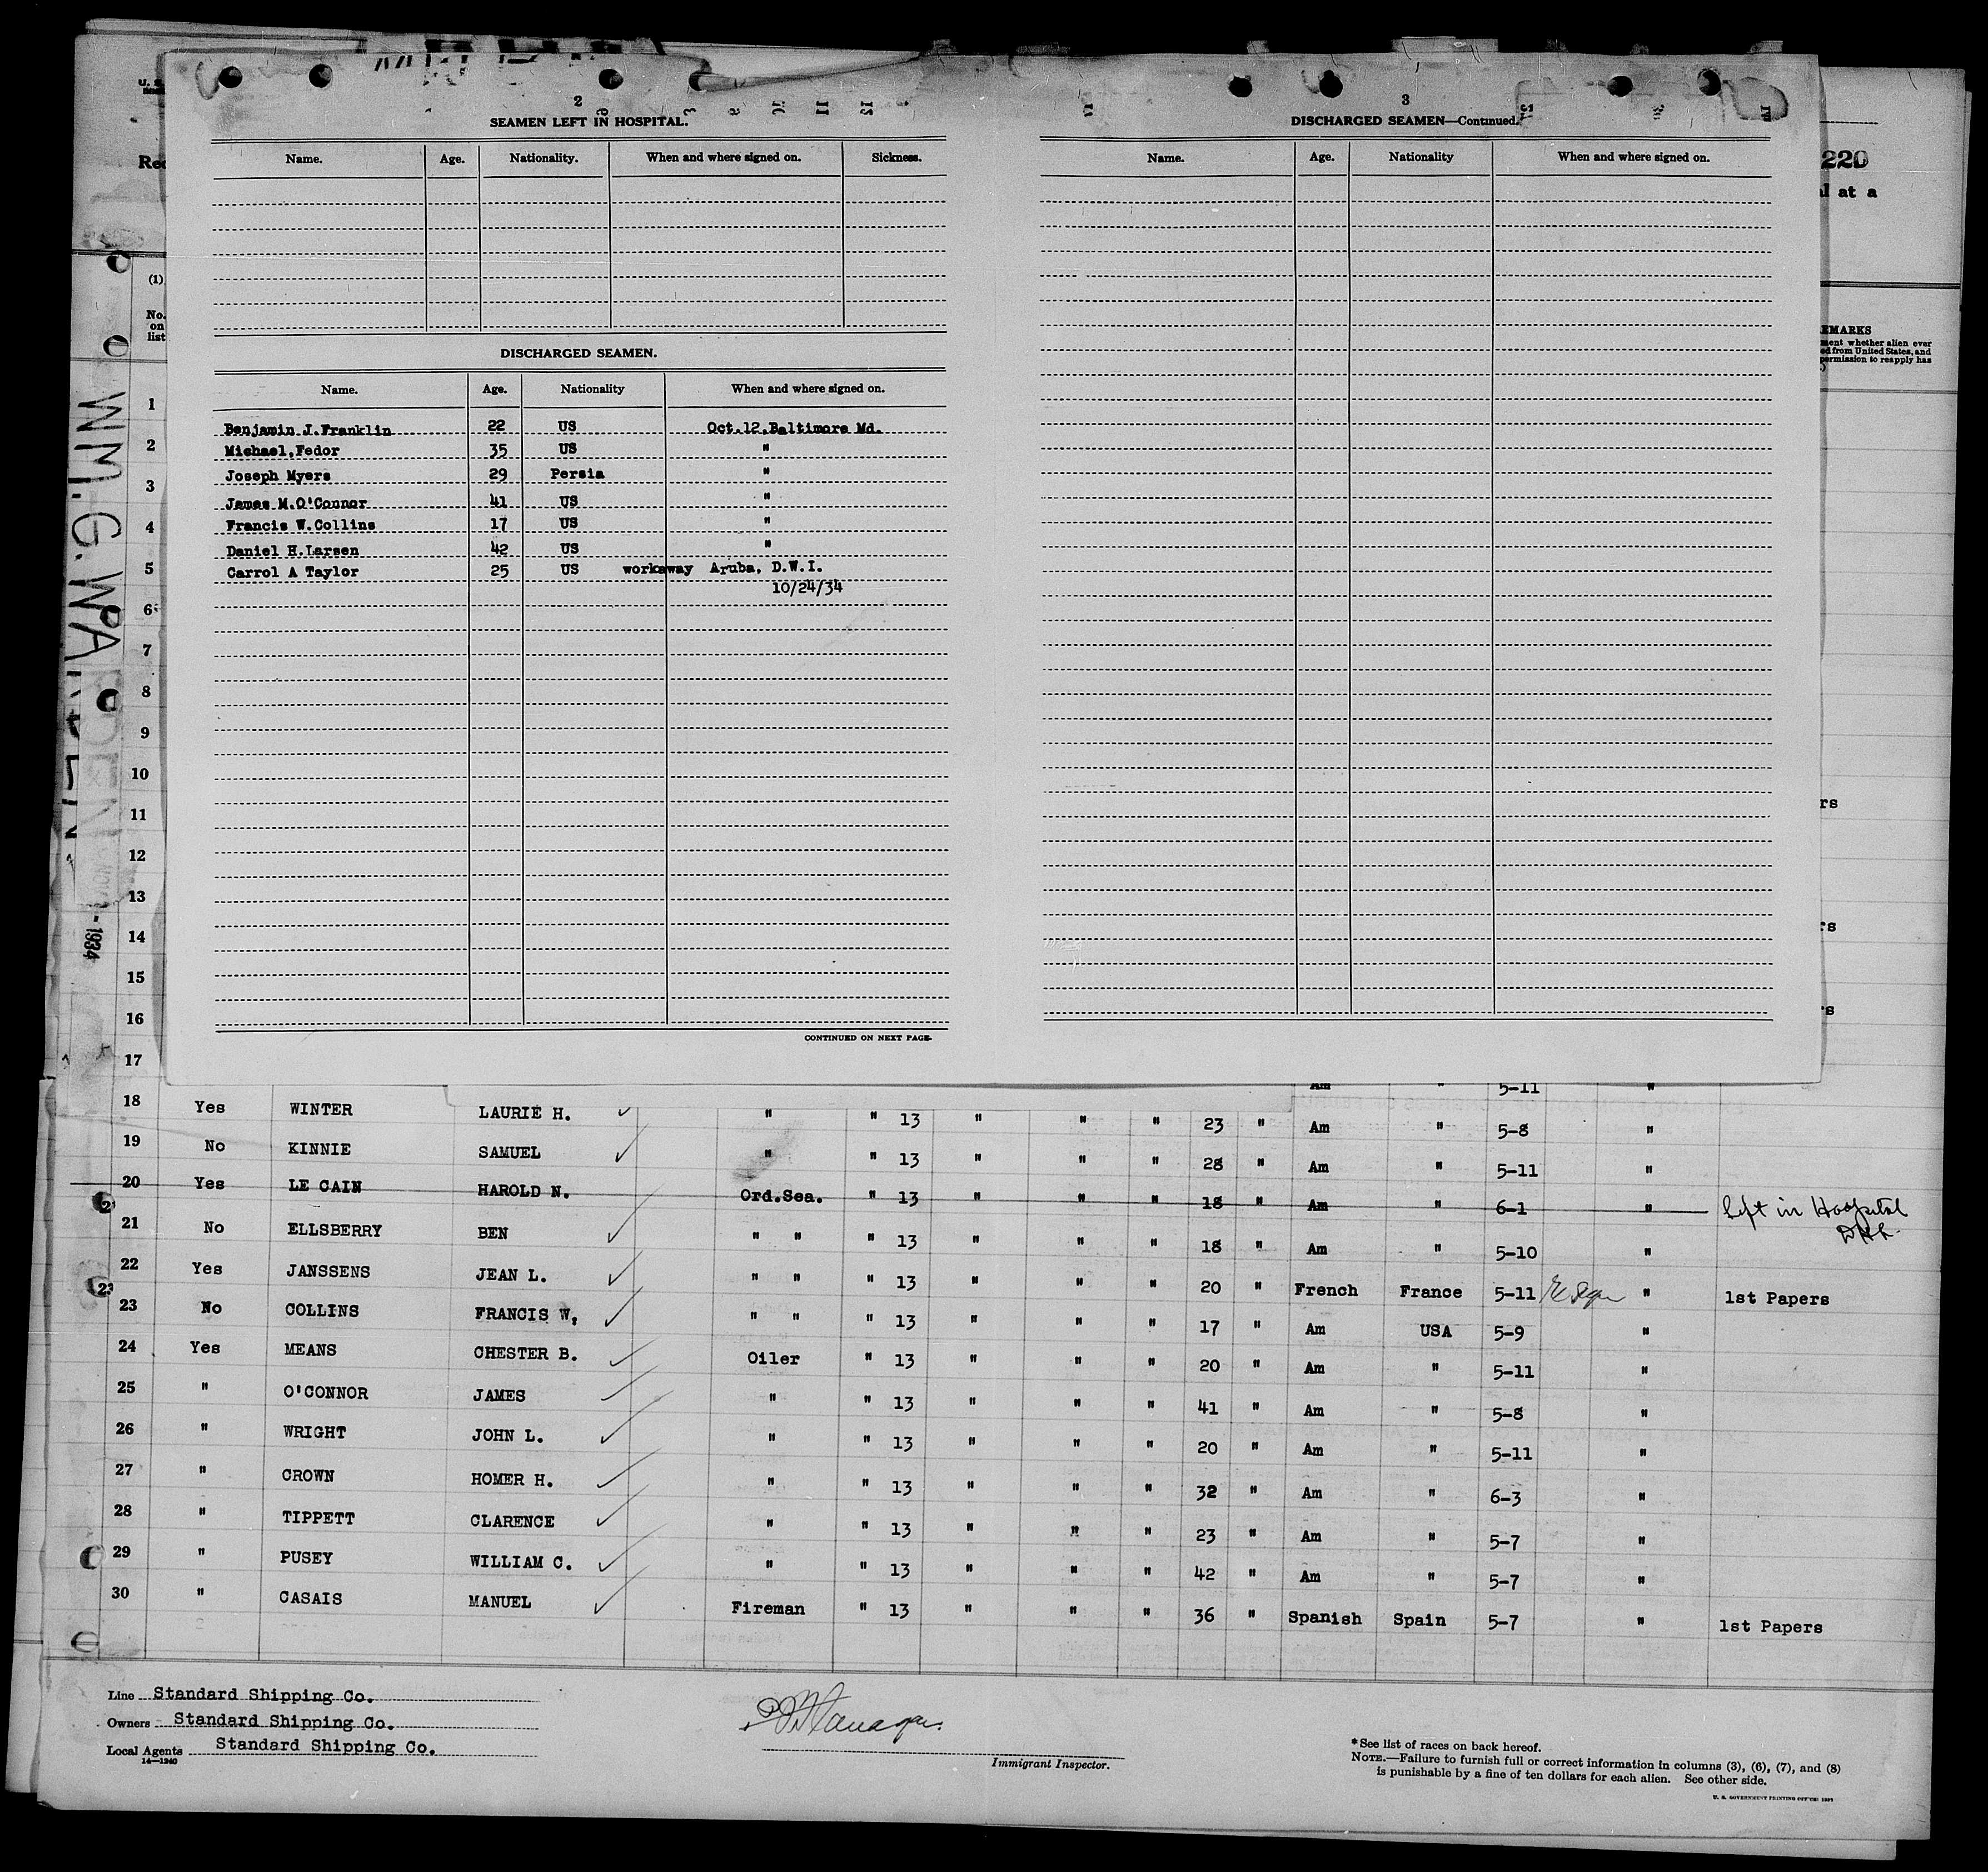 2
SEAMEN LEFT IN HOSPITAL.
Name. Age. Nationality. When and where signed on. Sickness.
DISCHARGED SEAMEN.
Name. Age. Nationality When and where signed on.
Benjamin J.Franklin 22 US Oct.12.Baltimore Md.
Michael,Fedor 35 US "
Joseph Myers 29 Persia "
James M.O'Connor 41 US "
Francis W.Collins 17 US "
Daniel H.Larsen 42 US "
Carrol A Taylor 25 US workaway Aruba, D.W.I.
10/24/34
CONTINUED ON NEXT PAGE.
3
DISCHARGED SEAMEN—Continued.
Name. Age. Nationality When and where signed on.
220
at a
(1)
No.
on
list
EMARKS
ment whether alien ever
ed from United States, and
permission to reapply has
WM. G. WARDEN
- 1934
1
2
3
4
5
6
7
8
9
10
11
12
13
14
15
16
17
Am " 5-11 "
18 Yes WINTER LAURIE H. " " 13 " " " 23 " Am " 5-8 "
19 No KINNIE SAMUEL " " 13 " " " 28 " Am " 5-11 "
20 Yes LE CAIN HAROLD N. Ord.Sea. " 13 " " " 18 " Am " 6-1 " left in Hospital
21 No ELLSBERRY BEN " " " 13 " " " 18 " Am " 5-10 "
22 Yes JANSSENS JEAN L. " " " 13 " " " 20 " French France 5-11 " 1st Papers
23 No COLLINS FRANCIS W. " " " 13 " " " 17 " Am USA 5-9 "
24 Yes MEANS CHESTER B. Oiler " 13 " " " 20 " Am " 5-11 "
25 " O'CONNOR JAMES " " 13 " " " 41 " Am " 5-8 "
26 " WRIGHT JOHN L. " " 13 " " " 20 " Am " 5-11 "
27 " CROWN HOMER H. " " 13 " " " 32 " Am " 6-3 "
28 " TIPPETT CLARENCE " " 13 " " " 23 " Am " 5-7 "
29 " PUSEY WILLIAM C. " " 13 " " " 42 " Am " 5-7 "
30 " CASAIS MANUEL Fireman " 13 " " " 36 " Spanish Spain 5-7 " 1st Papers
Line Standard Shipping Co.
Owners Standard Shipping Co.
Local Agents Standard Shipping Co.
14—1240
Immigrant Inspector.
*See list of races on back hereof.
NOTE.—Failure to furnish full or correct information in columns (3), (6), (7), and (8)
is punishable by a fine of ten dollars for each alien. See other side.
U. S. GOVERNMENT PRINTING OFFICE